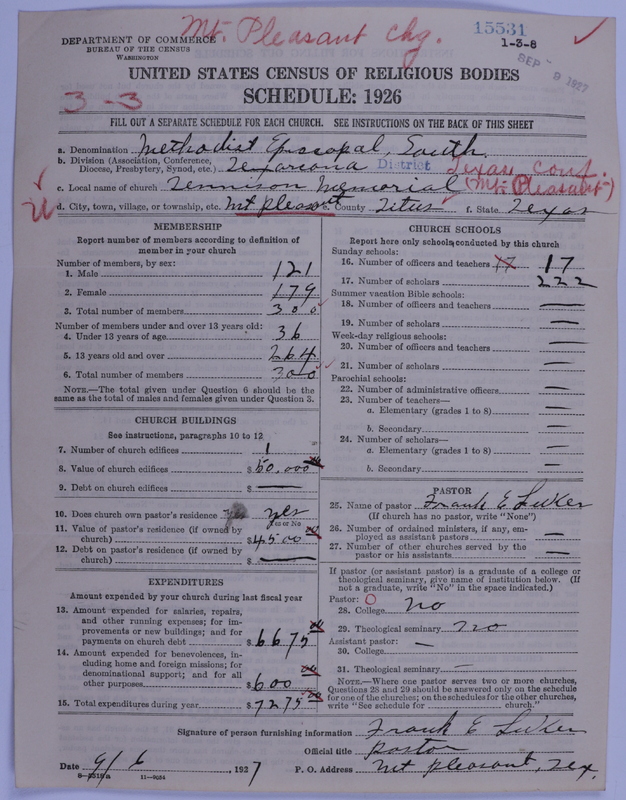 Mt. Pleasant chg.
15531
DEPARTMENT OF COMMERCE
BUREAU OF THE CENSUS
WASHINGTON
1-3-8
SEP 9 1927
UNITED STATES CENSUS OF RELIGIOUS BODIES
3-3
SCHEDULE: 1926
FILL OUT A SEPARATE SCHEDULE FOR EACH CHURCH. SEE INSTRUCTIONS ON THE BACK OF THIS SHEET
a. Denomination Methodist Episcopal, South.
b. Division (Association, Conference, Diocese, Presbytery, Synod, etc.) Texarcana District Texas Conf.
c. Local name of church Tennison Memorial (Mt. Pleasant)
d. City, town, village, or township, etc. Mt pleasant e. County Titus f. State Texas
MEMBERSHIP
Report number of members according to definition of
member in your church
Number of members, by sex:
1. Male 121
2. Female 179
3. Total number of members 300
Number of members under and over 13 years old:
4. Under 13 years of age 36
5. 13 years old and over 264
6. Total number of members 300
NOTE.—The total given under Question 6 should be
the same as the total of males and females given under Question 3.
CHURCH BUILDINGS
See instructions, paragraphs 10 to 12
7. Number of church edifices 1
8. Value of church edifices $50,000
9. Debt on church edifices $ —
10. Does church own pastor's residence yes
Yes or No
11. Value of pastor's residence (if owned by
church) $4500
12. Debt on pastor's residence (if owned by
church) $ —
EXPENDITURES
Amount expended by your church during last fiscal year
13. Amount expended for salaries, repairs,
and other running expenses; for im-
provements or new buildings; and for
payments on church debt $6675
14. Amount expended for benevolences, in-
cluding home and foreign missions; for
denominational support; and for all
other purposes $600
15. Total expenditures during year $7275
CHURCH SCHOOLS
Report here only schools conducted by this church
Sunday schools:
16. Number of officers and teachers 17 17
17. Number of scholars 222
Summer vacation Bible schools:
18. Number of officers and teachers —
19. Number of scholars —
Week-day religious schools:
20. Number of officers and teachers —
21. Number of scholars —
Parochial schools:
22. Number of administrative officers —
23. Number of teachers—
a. Elementary (grades 1 to 8) —
b. Secondary —
24. Number of scholars—
a. Elementary (grades 1 to 8) —
b. Secondary —
PASTOR
25. Name of pastor Frank E Luker
(If church has no pastor, write "None")
26. Number of ordained ministers, if any, em-
ployed as assistant pastors —
27. Number of other churches served by the
pastor or his assistants —
If pastor (or assistant pastor) is a graduate of a college or
theological seminary, give name of institution below. (If
not a graduate, write "No" in the space indicated.)
Pastor: O
28. College no
29. Theological seminary no
Assistant pastor:
30. College —
31. Theological seminary —
NOTE.—Where one pastor serves two or more churches,
Questions 28 and 29 should be answered only on the schedule
for one of the churches; on the schedules for the other churches,
write "See schedule for church."
Signature of person furnishing information Frank E Luker
Official title Pastor
Date 9/6, 1927 P. O. Address Mt pleasant, Tex.
8-1318a 11-9054